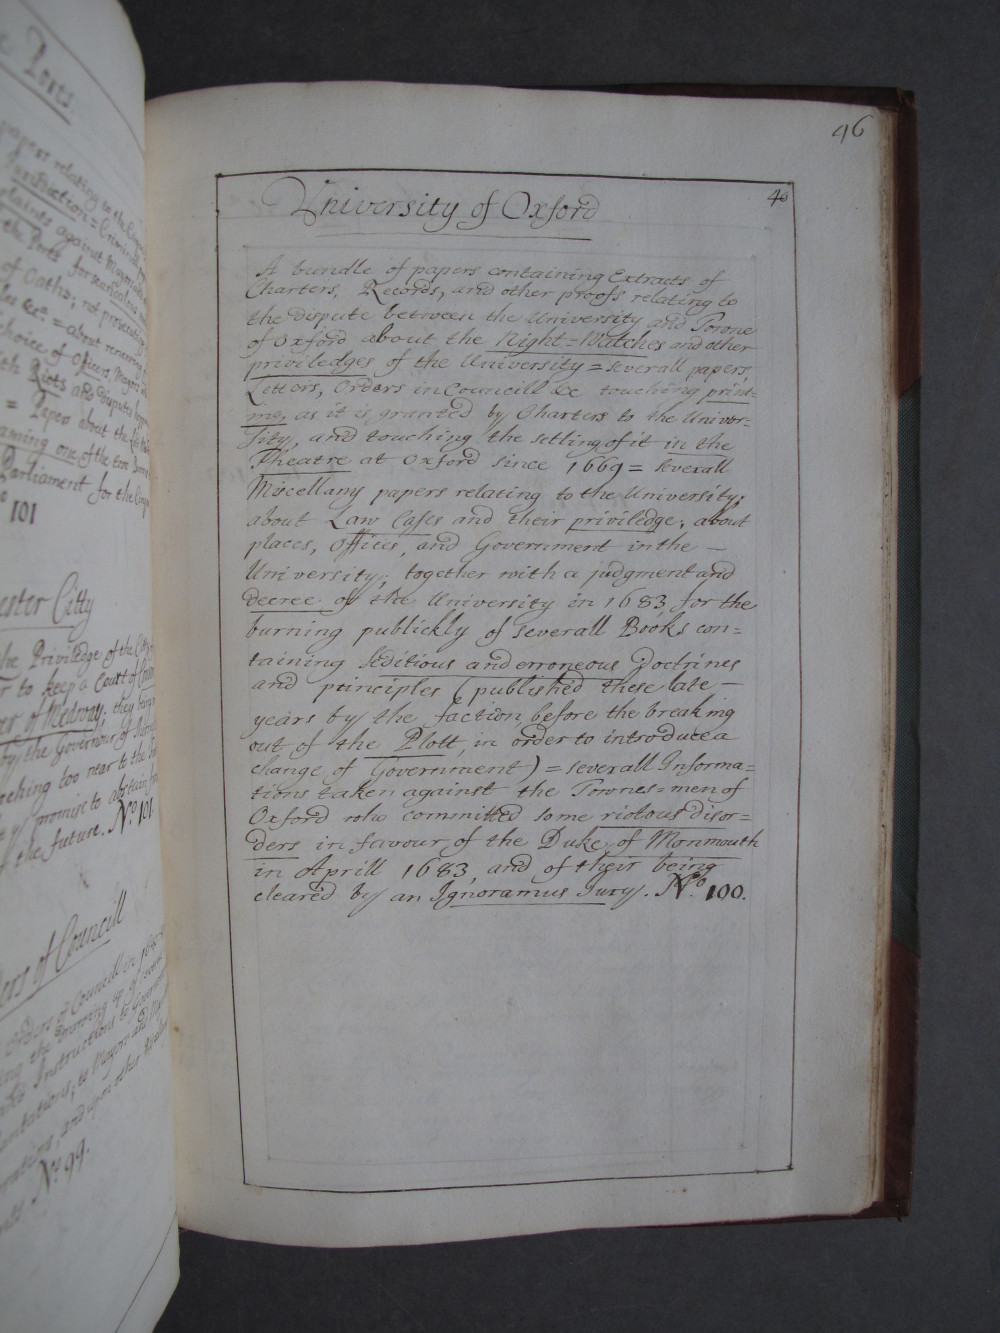 e Ports.
papers relating to the
Jurisdiction = Criminal
plaints against Mayors
the Ports for scandalous
of Oaths; not prosecuting
les &ca = about renewing
choice of Officers, Mayors
th Riots and disputes
= Papers about the
aming one of the two
Parliament for the
101
ester Citty
he Priviledge of the Citty
r to keep a Court of
er of Medway; they
by the Governour of
oaching too near to the
promise to abstain
the future. No. 101.
ers of Councill
Orders of Councill in
ing the drawing up of
and Instructions to
lantations; to Mayors and
orations, and upon other
No 99.
46
40
University of Oxford
A bundle of papers containing Extracts of
Charters, Records, and other proofs relating to
the dispute between the University and Towne
of Oxford about the Night=Watches and other
priviledges of the University = severall papers,
Letters, Orders in Councill &c touching prin=
ing, as it is granted by Charters to the Univer=
sity, and touching the setling of it in the
Theatre at Oxford since 1669 = severall
Miscellany papers relating to the University;
about Law Cases and their priviledge; about
places, Offices, and Government in the —
University; together with a judgment and
decree of the University in 1683 for the
burning publickly of severall Books con=
taining Seditious and erroneous Doctrines
and principles (published these late —
years by the faction before the breaking
out of the Plott in order to introduce a
change of Government) = severall Informa=
tions taken against the Townes=men of
Oxford who committed some riotous disor=
ders in favour of the Duke of Monmouth
in Aprill 1683, and of their being
cleared by an Ignoramus Jury. No. 100.